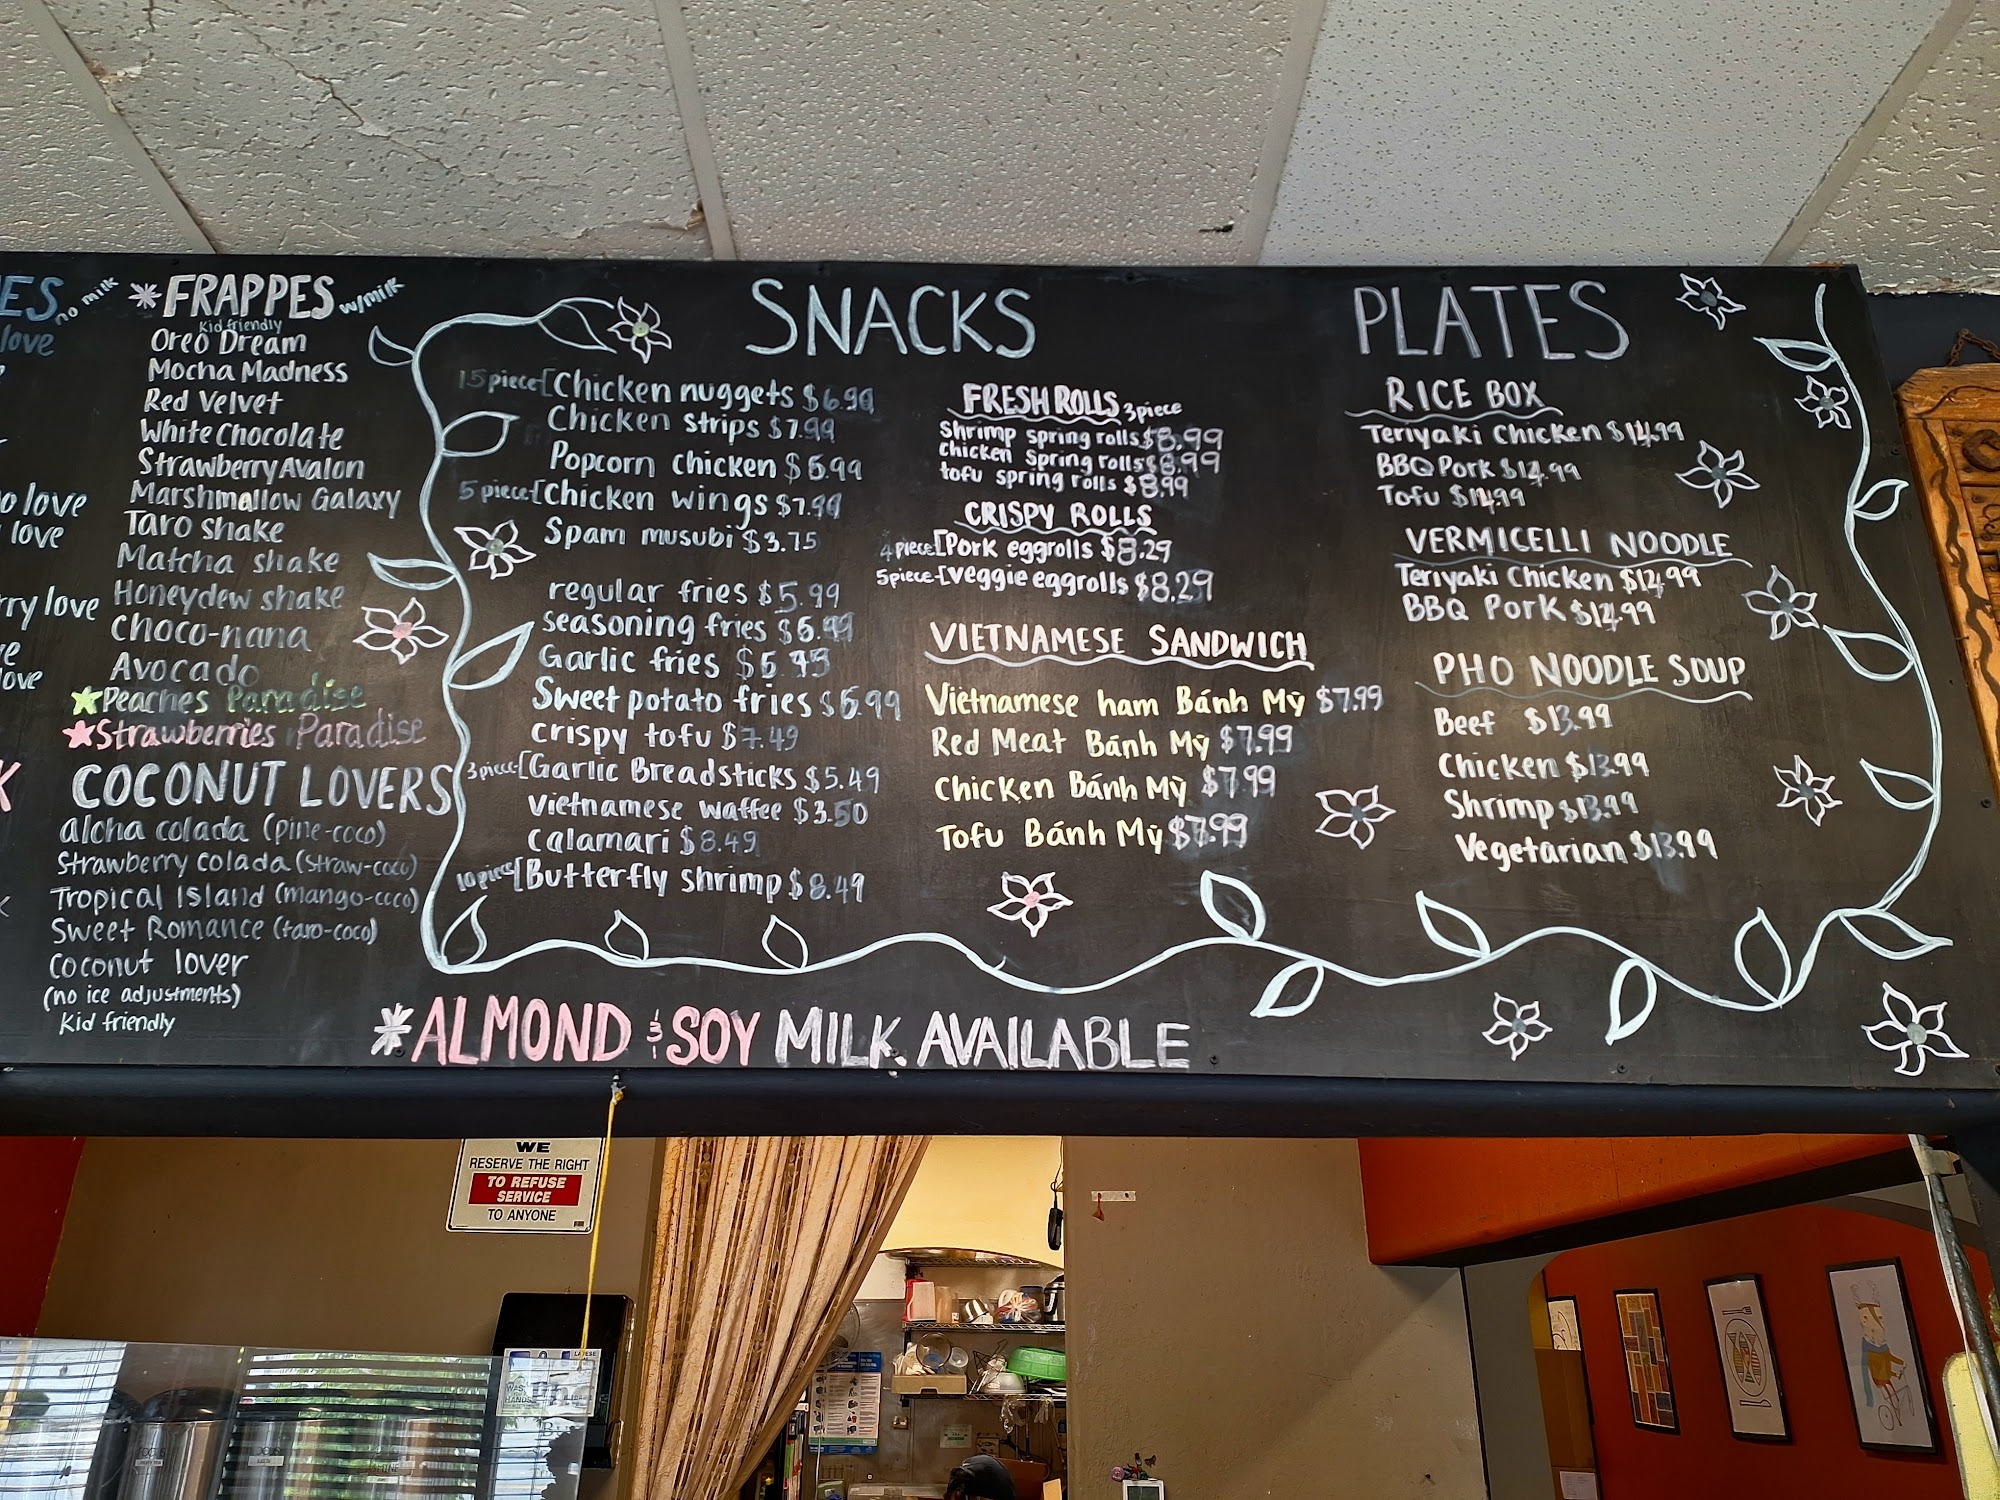 no milk
love
love
love
rry love
love
*FRAPPES w/milk
Kid friendly
Oreo Dream
Mocha Madness
Red Velvet
White Chocolate
Strawberry Avalon
Marshmallow Galaxy
Taro shake
Matcha shake
Honeydew shake
Choco-nana
Avocado
Peaches Paradise
Strawberries Paradise
COCONUT LOVERS
aloha colada (pine-coco)
Strawberry colada (straw-coco)
Tropical Island (mango-coco)
Sweet Romance (taro-coco)
Coconut lover
(no ice adjustments)
Kid friendly
SNACKS
15 piece [Chicken nuggets $6.99
Chicken strips $7.99
Popcorn chicken $6.99
5 piece [Chicken wings $7.99
Spam musubi $3.75
regular fries $5.99
seasoning fries
Garlic fries
Sweet potato fries
crispy tofu $7.49
3 piece [Garlic Breadsticks $5.49
Vietnamese waffee $3.50
Calamari $8.49
10 piece [Butterfly shrimp $8.49
FRESH ROLLS 3 piece
Shrimp spring rolls $8.99
chicken spring rolls $8.99
tofu spring rolls $8.99
CRISPY ROLLS
4 piece [Pork eggrolls $8.29
5 piece [veggie eggrolls $8.29
VIETNAMESE SANDWICH
Vietnamese ham Bánh Mỳ $7.99
Red Meat Bánh Mỳ $7.99
Chicken Bánh Mỳ $7.99
Tofu Bánh Mỳ $7.99
PLATES
RICE BOX
Teriyaki Chicken $14.99
BBQ Pork $14.99
Tofu $14.99
VERMICELLI NOODLE
Teriyaki Chicken $14.99
BBQ Pork $14.99
PHO NOODLE SOUP
Beef $13.99
Chicken $13.99
Shrimp $13.99
Vegetarian $13.99
*ALMOND & SOY MILK AVAILABLE
WE
RESERVE THE RIGHT
TO REFUSE
SERVICE
TO ANYONE